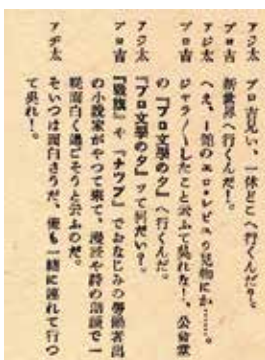 アジ太　プロ吉兄い、一体どこへ行くんだ？。
プロ吉　新世界へ行くんだ！。
アジ太　へえ、一館のエロ・レビユウ見物にか……。
プロ吉　ジャラ／＼したこと云ふて呉れな！、公会堂
の『プロ文學の夕』へ行くんだ。
アジ太　『プロ文學の夕』ッて何だい？。
プロ吉　『戰旗』や『ナツプ』でおなじみの勞働者出
の小説家がやつて來て、漫談や詩の朗讀で一
晩面白く過ごそうと云ふのだ。
アヂ太　そいつは面白さうだ、俺も一緒に連れて行つ
て呉れ！。